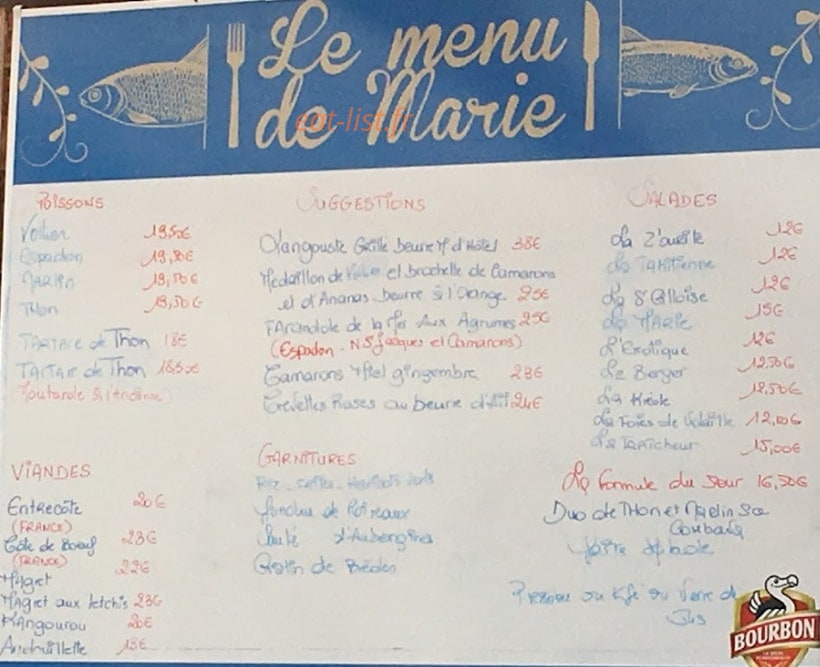 Le menu
de Marie
eat-list.fr
POISSONS
Voilier 19,50€
Espadon 19,50€
MARLIN 19,50€
THON 19,50€
TARTARE de Thon 18€
TATAKI de Thon 18,50€
VIANDES
Entrecôte 20€
(FRANCE)
Côte de Boeuf 23€
(FRANCE)
Magret 22€
MAgret aux letchis 23€
KAngourou 20€
Andouillette 18€
SUGGESTIONS
Langouste Grillée beurre M d'Hôtel 38€
Medaillon de et brochette de Camarons
et d'Ananas beurre à l'Orange 25€
FArandole de la Mer Aux Agrumes 25€
(Espadon. N S Jacques et Camarons)
Camarons Miel gingembre 23€
Crevettes Roses au beurre d'Ail 24€
GARNITURES
Riz - - Haricots verts
Fondue de Poireaux
Sauté d'Aubergine
Gratin de Brèdes
SALADES
La 12€
La TAhitienne 12€
La St Gilloise 12€
La MARIE 15€
L'Exotique 12€
Le Berger 12,50€
La Kréole 12,50€
La Foies de Volaille 12,00€
La FRAîcheur 15,00€
La formule du Jour 16,50€
Duo de Thon et Marlin Sce
Combava
Pression ou Kfé ou Verre de
Jus
BOURBON